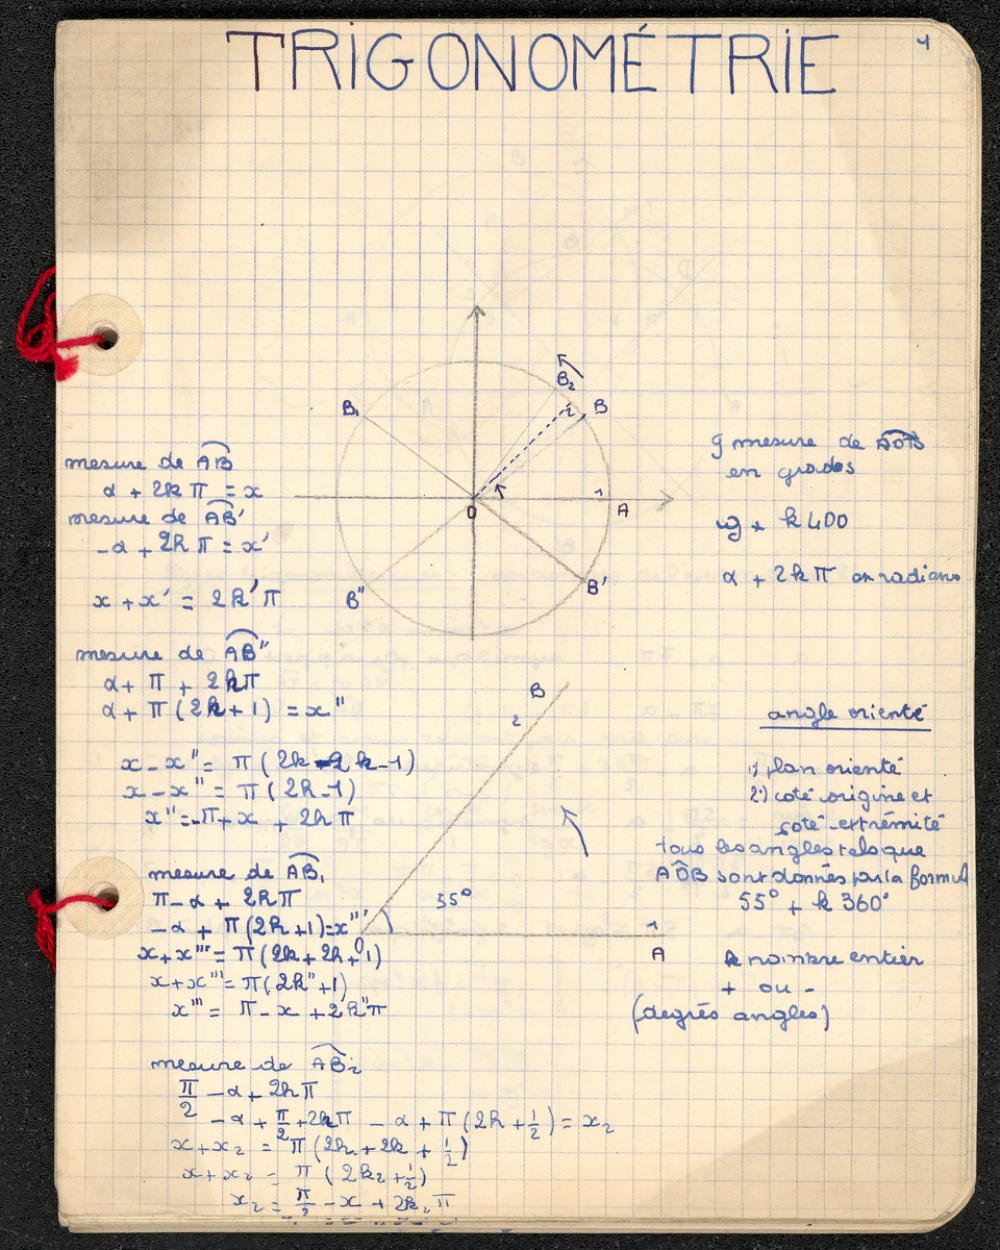 1
TRIGONOMÉTRIE
B₂
B₁
i
B
O
A
B'
B"
mesure de AB
α + 2kπ = x
mesure de AB'
-α + 2kπ = x'
x + x' = 2k'π
mesure de AB"
α + π + 2kπ
α + π(2k+1) = x"
x - x" = π(2k-2k-1)
x - x" = π(2k-1)
x" = -π + x + 2kπ
mesure de AB₁
π - α + 2kπ
-α + π(2k+1) = x'''
x + x''' = π(2k + 2k + 1)
x + x''' = π(2k" + 1)
x''' = π - x + 2k"π
mesure de AB₂
π/2 - α + 2kπ
-α + π/2 + 2kπ - α + π(2k + 1/2) = x₂
x + x₂ = π(2k + 2k + 1/2)
x + x₂ = π(2k₂ + 1/2)
x₂ = π/2 - x + 2k₂π
g mesure de AOB
en grades
g + k400
α + 2kπ en radians
B
2
55°
O
A
angle orienté
1) plan orienté
2) coté origine et
coté extrémité
tous les angles tels que
AOB sont donnés par la formul
55° + k 360°
k nombre entier
+ ou -
(degrés angles)